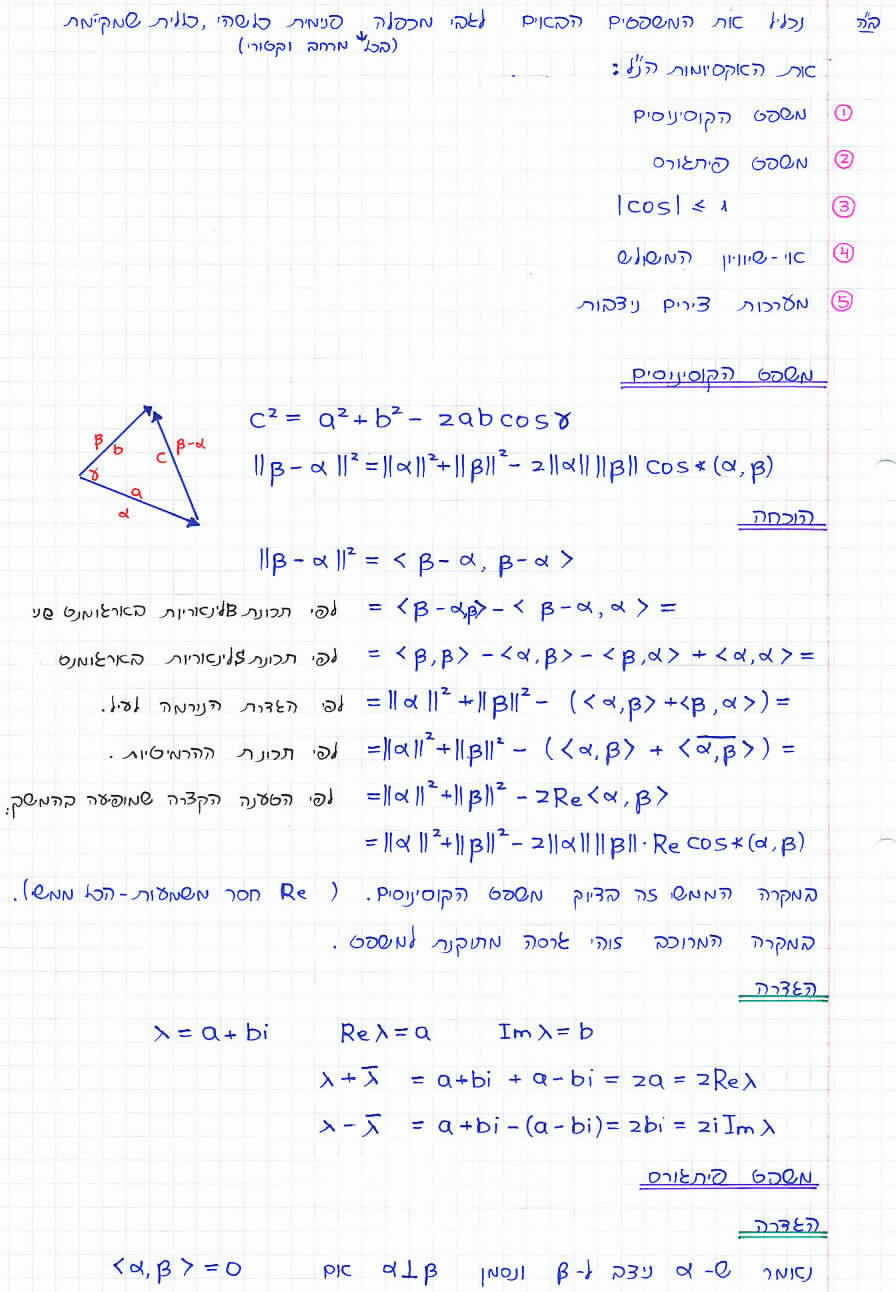 ב"ה נכליל את המשפטים הבאים לגבי מכפלה פנימית כלשהי, כללית שמקיימת
(בכל מרחב וקטורי)
את האקסיומות הנ"ל:
① משפט הקוסינוסים
② משפט פיתגורס
③ |cos| ≤ 1
④ אי-שיוויון המשולש
⑤ מערכות צירים ניצבות
משפט הקוסינוסים
c² = a² + b² - 2ab cos γ
||β - α||² = ||α||² + ||β||² - 2||α|| ||β|| cos∢(α, β)
β b γ a α c β-α
הוכחה
||β - α||² = < β - α, β - α >
= <β - α,β> - < β - α, α > = לפי תכונת Bלינאריות בארגומנט שני
= <β, β> - <α, β> - <β, α> + <α, α> = לפי תכונת Sלינאריות בארגומנט
= ||α||² + ||β||² - (<α, β> + <β, α>) = לפי הגדרת הנורמה לעיל.
= ||α||² + ||β||² - (<α, β> + <\overline{α, β}>) = לפי תכונת ההרמיטיות.
= ||α||² + ||β||² - 2Re<α, β> לפי הטענה הקצרה שמופיעה בהמשך:
= ||α||² + ||β||² - 2||α|| ||β|| · Re cos∢(α, β)
במקרה הממשי זה בדיוק משפט הקוסינוסים. ( Re חסר משמעות - הכל ממשי).
במקרה המרוכב זוהי גרסה מתוקנת למשפט.
הגדרה
λ = a + bi Re λ = a Im λ = b
λ + \overline{λ} = a + bi + a - bi = 2a = 2Re λ
λ - \overline{λ} = a + bi - (a - bi) = 2bi = 2i Im λ
משפט פיתגורס
הגדרה
נאמר ש- α ניצב ל- β ונסמן α⊥β אם <α, β> = 0